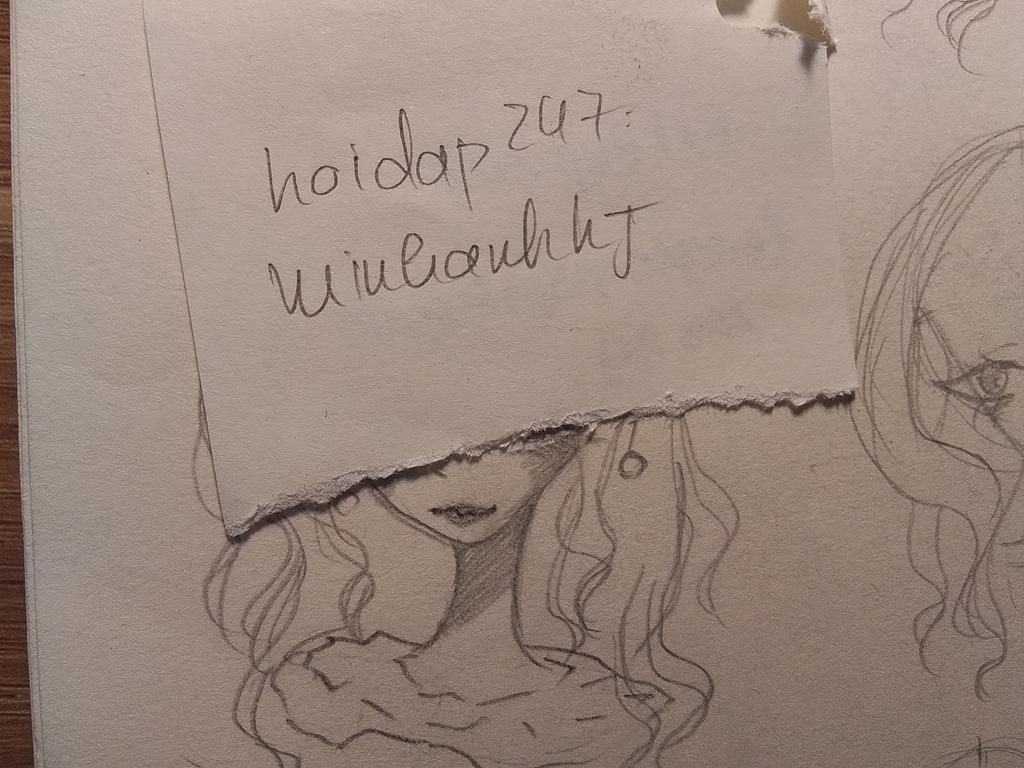 hoidap247:
minhanhkJ